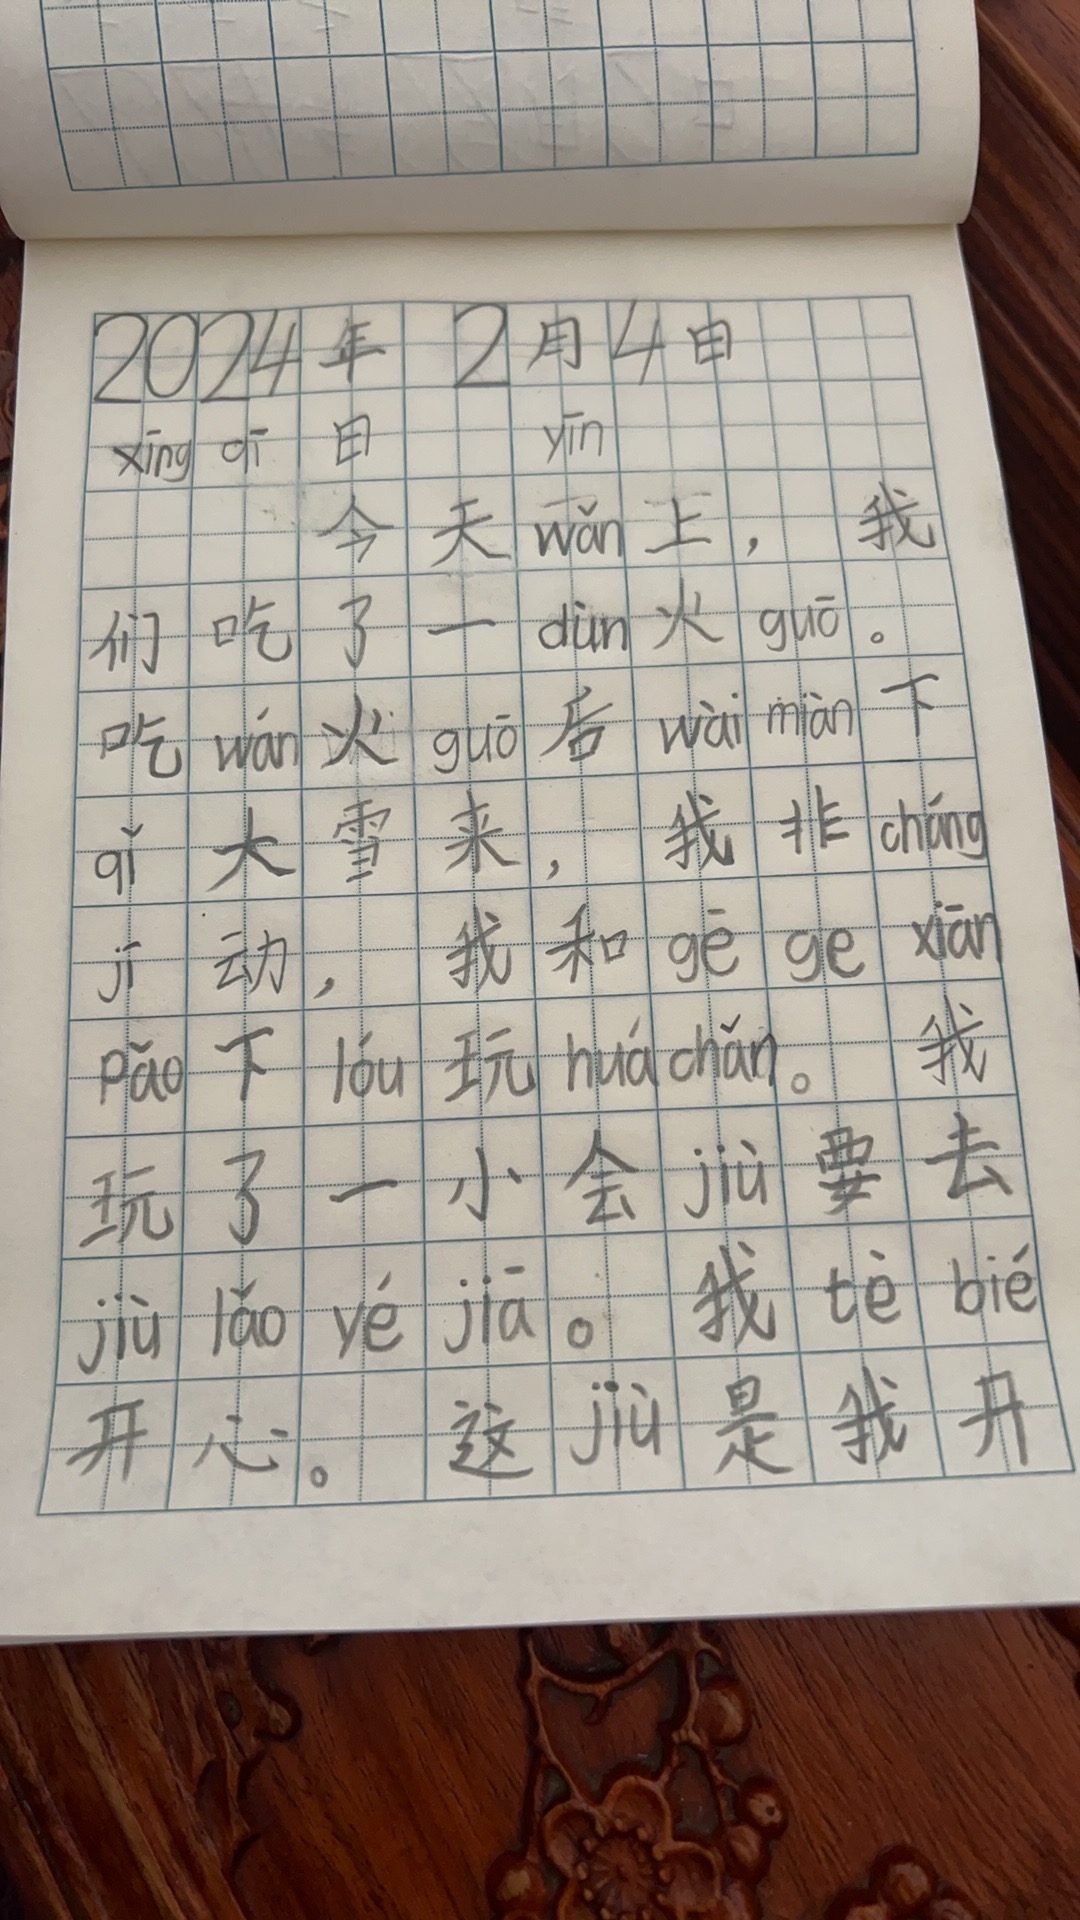 2024年 2月4日
xīng qī 日 yīn
今天wǎn上，我
们吃了一dùn火guō。
吃wán火guō后wài miàn下
qǐ大雪来，我非cháng
jī动，我和gē ge xiān
pǎo下lóu玩huá chǎn。我
玩了一小会jiù要去
jiù lǎo yé jiā。我tè bié
开心。这jiù是我开